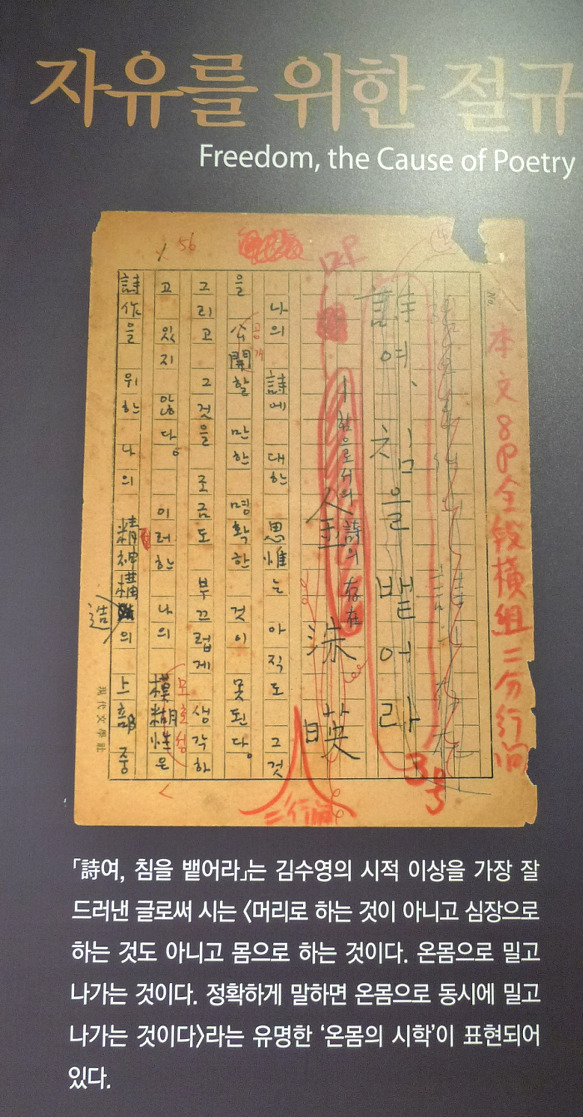 자유를 위한 절규
Freedom, the Cause of Poetry
No.
本文 8P 全段横組 二分行间
詩여, 침을 뱉어라
힘으로서의 詩의 存在
金洙暎
나의 詩에 대한 思惟는 아직도 그것
을 公開할 만한 명확한 것이 못된다.
그리고 그것을 조금도 부끄럽게 생각하
고 있지 않다. 이러한 나의 模糊性은
詩作을 위한 나의 精神構造의 上部 중
공개
모호성
56
12P
35
三行间
現代文學社
「詩여, 침을 뱉어라」는 김수영의 시적 이상을 가장 잘
드러낸 글로써 시는 〈머리로 하는 것이 아니고 심장으로
하는 것도 아니고 몸으로 하는 것이다. 온몸으로 밀고
나가는 것이다. 정확하게 말하면 온몸으로 동시에 밀고
나가는 것이다〉라는 유명한 ‘온몸의 시학’이 표현되어
있다.